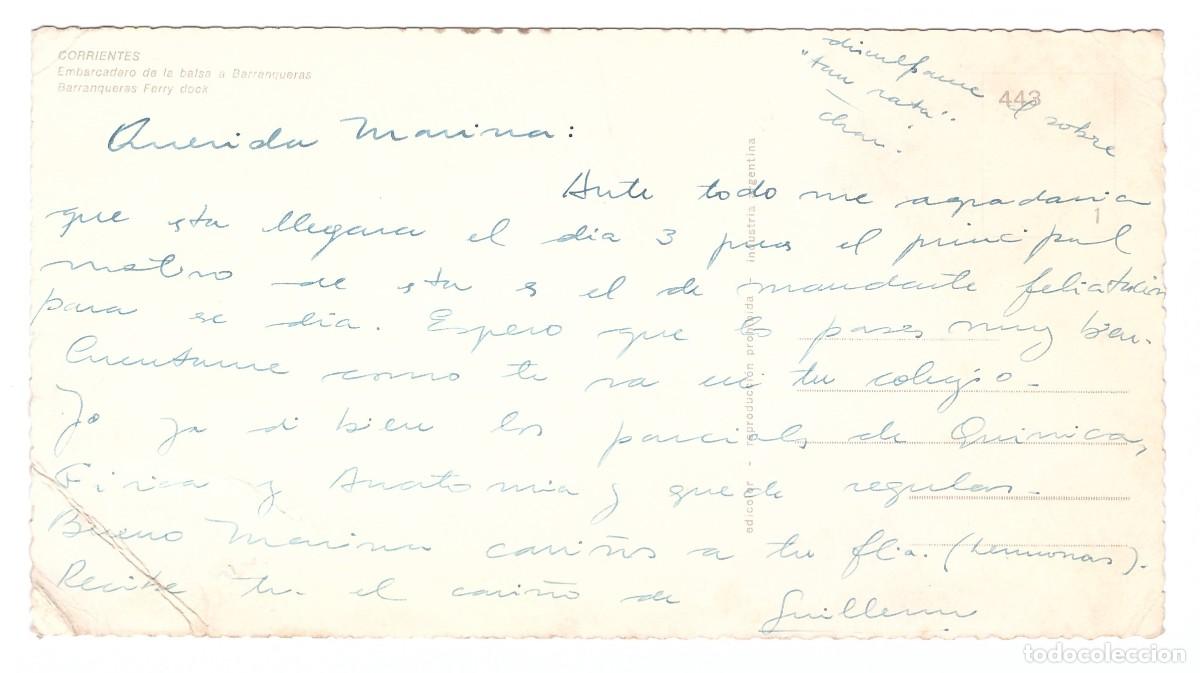 CORRIENTES
Embarcadero de la balsa a Barranqueras
Barranqueras Ferry dock
443
1
disculpame el sobre
"tan rata".
chau.
Querida Marina:
Ante todo me agradaria
que esta llegara el dia 3 pues el principal
motivo de esta es el de mandarte felicitación
para ese dia. Espero que lo pases muy bien.
Cuentame como te va en tu colegio.
Yo ya di bien los parciales de Quimica,
Fisica y Anatomia y quede regular.
Bueno Marina cariños a tu flia. (hermanas).
Recibe tu el cariño de Guillermo
edicolor - reproducción prohibida - industria argentina
todocoleccion